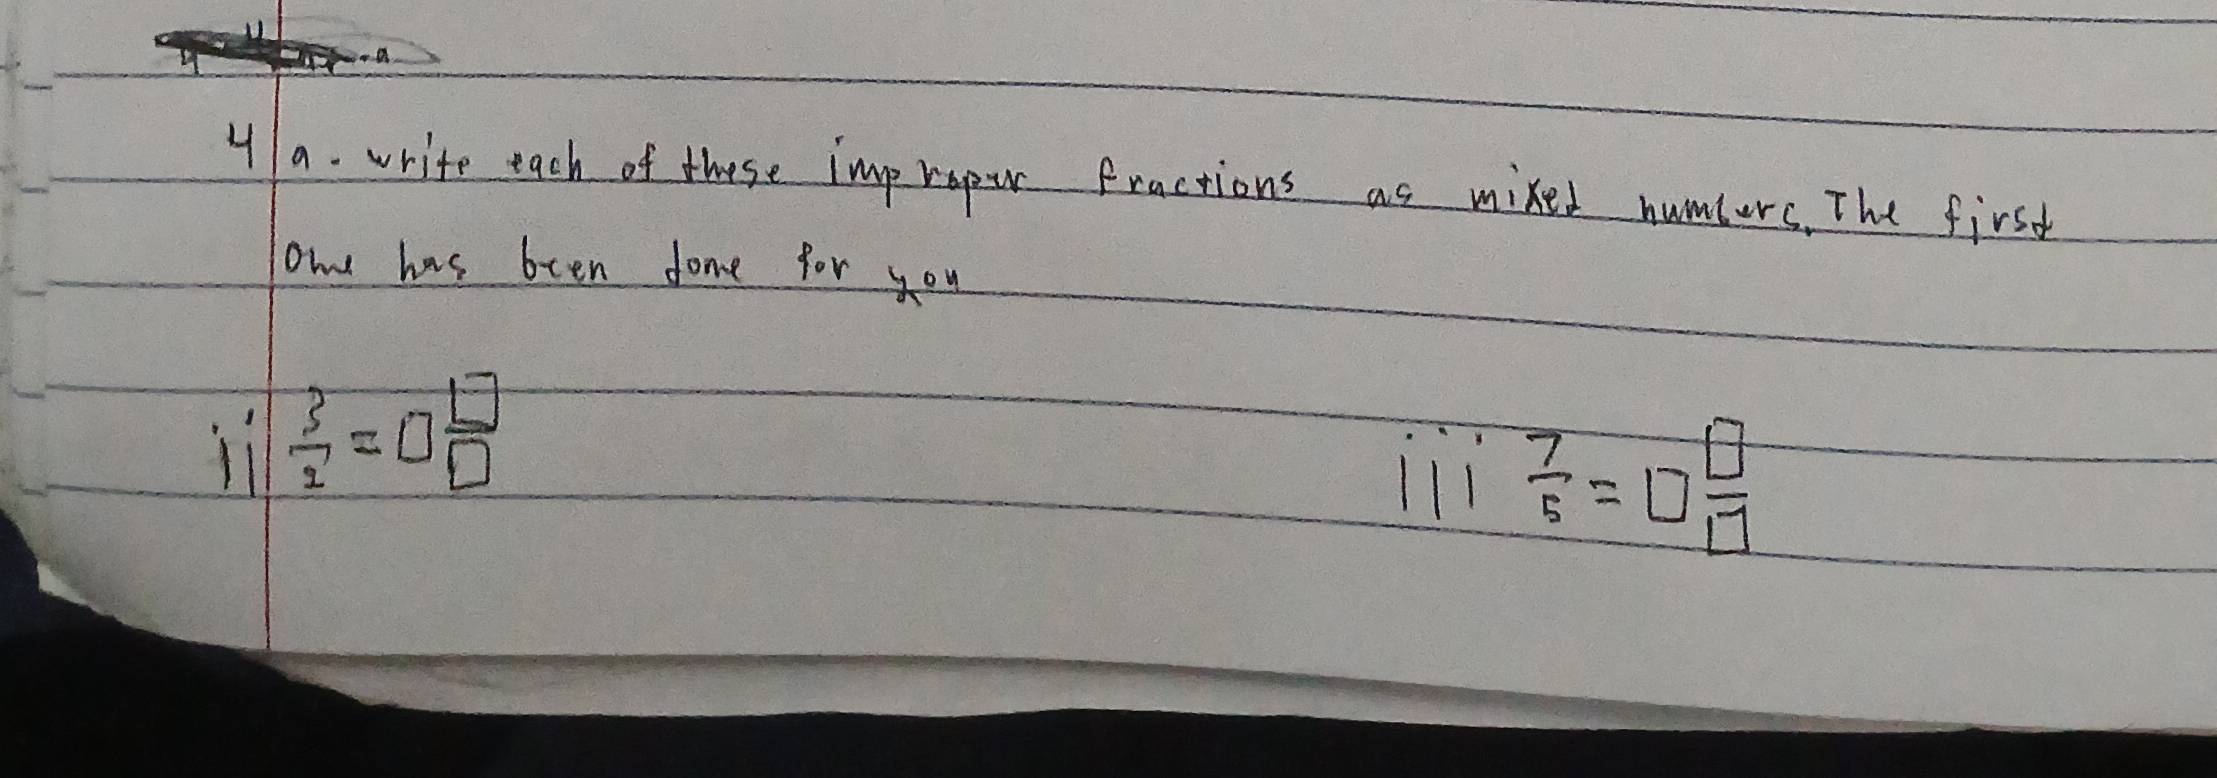 4 a. write each of these improper fractions as mixed numbers. The first
one has been done for you
ii 3/2 = □ □/□ iii 7/5 = □ □/□